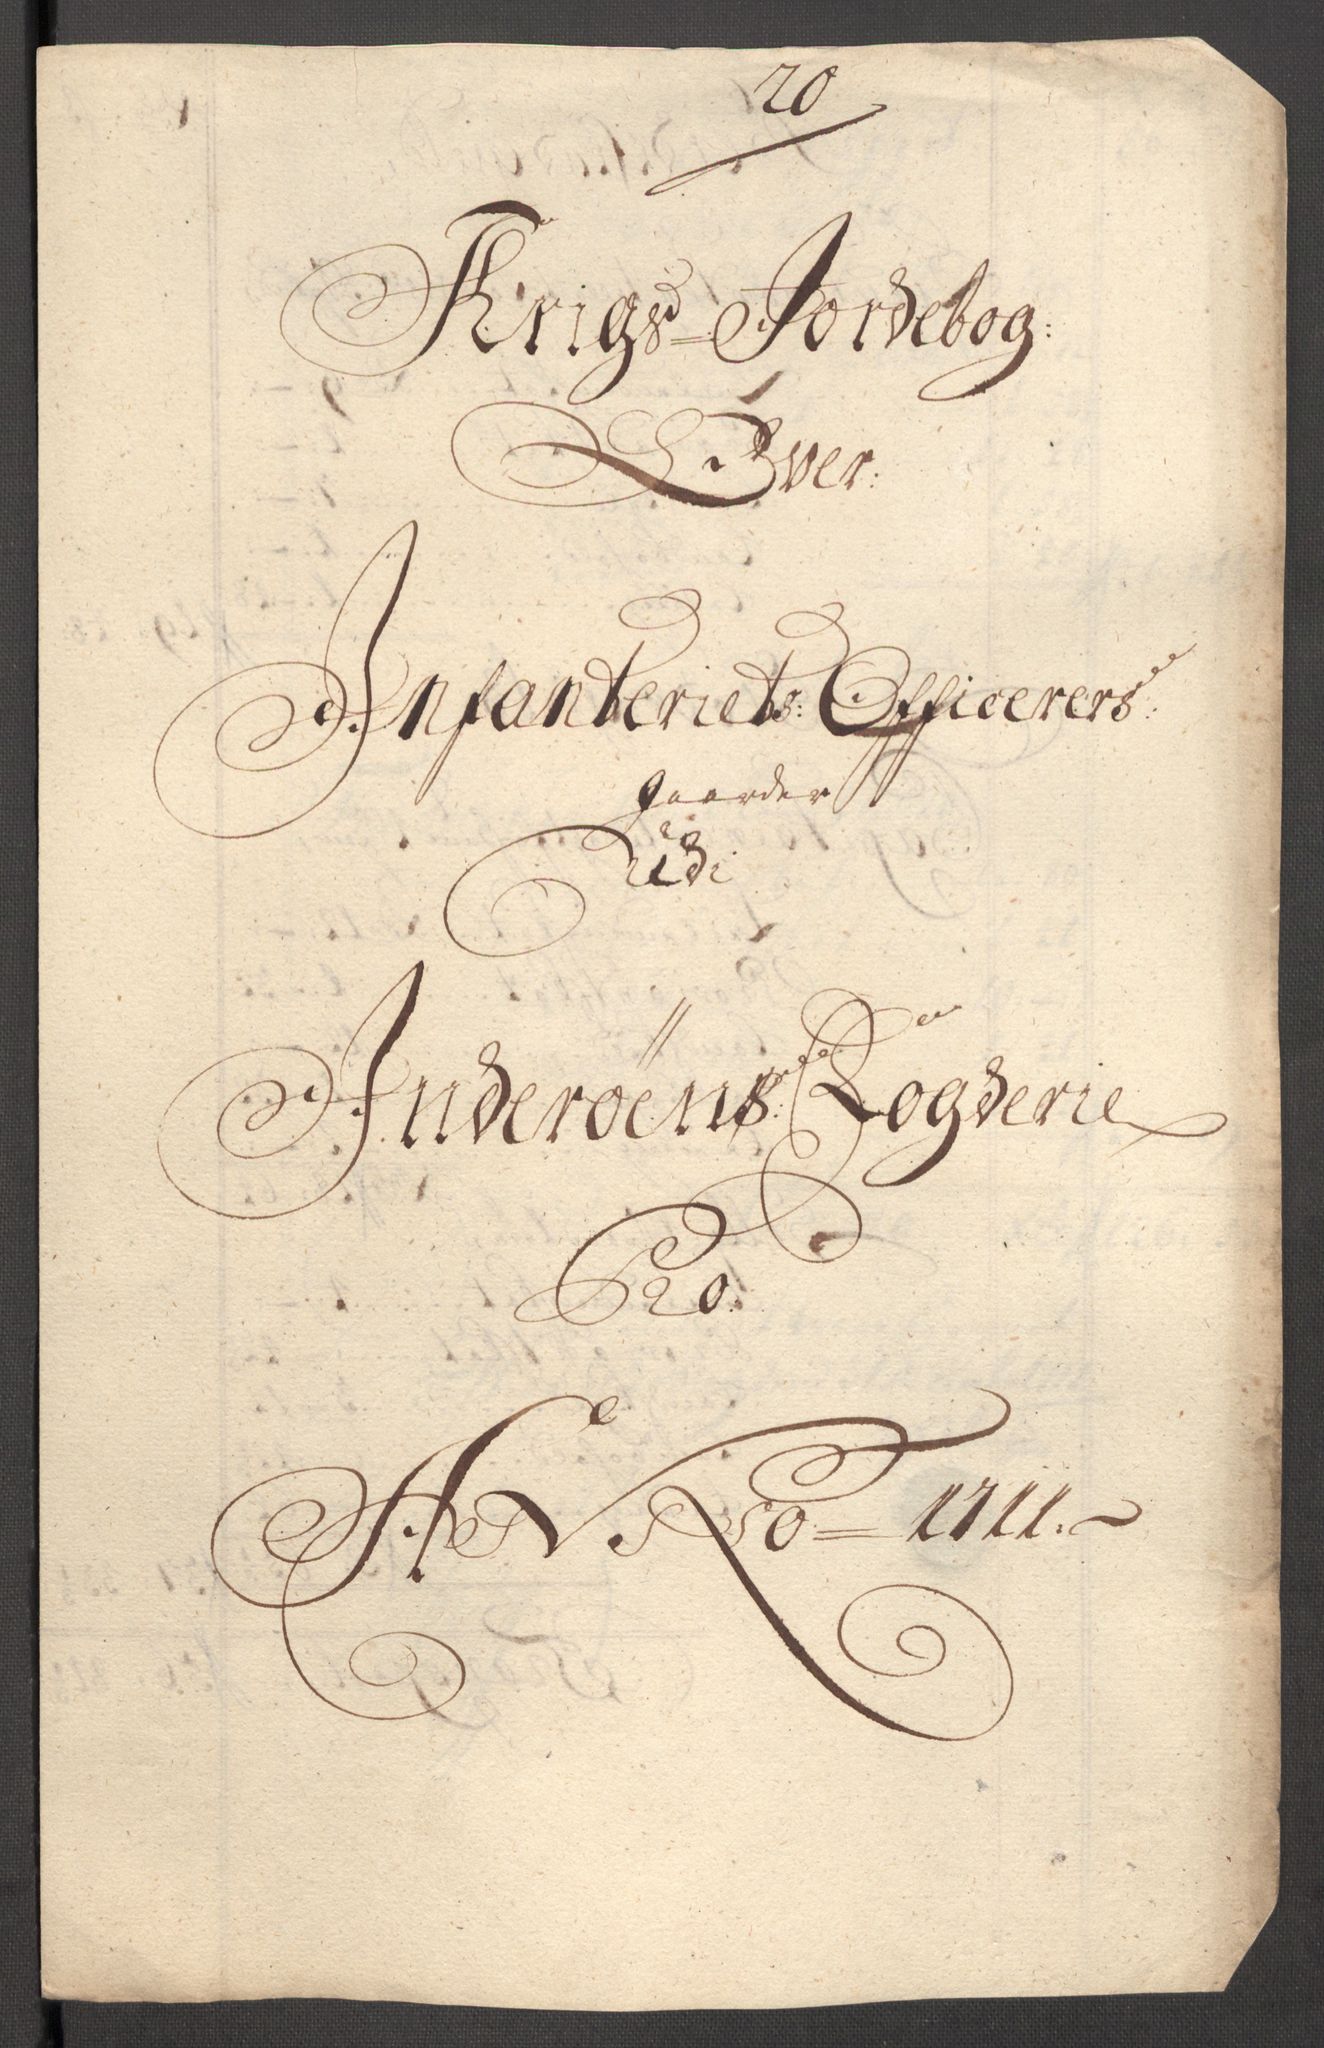 20
Krigs=Jordebog:
Over:
Infanteriets: Officerers:
gaarder
udi
Inderøens: Fogderie
Pro.
Anno=1711.